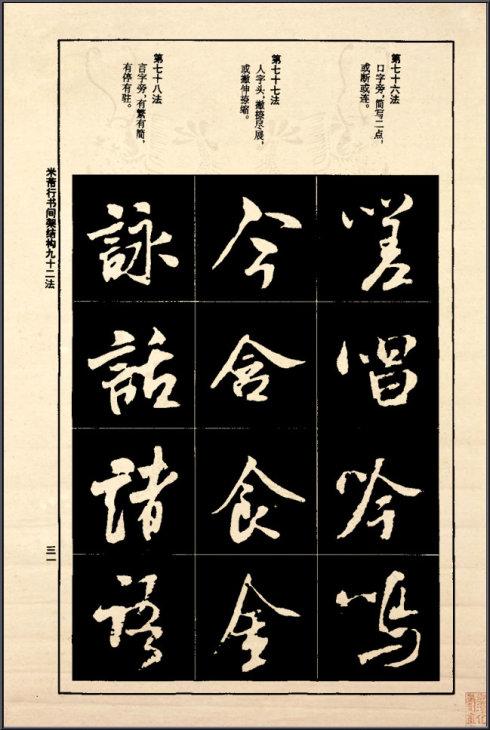 第七十六法
口字旁，简写二点，
或断或连。
第七十七法
人字头，撇捺尽展，
或撇伸捺缩。
第七十八法
言字旁，有繁有简，
有停有驻。
嗟
唱
吟
鸣
今
含
食
金
詠
話
諸
語
米芾行书间架结构九十二法
三一